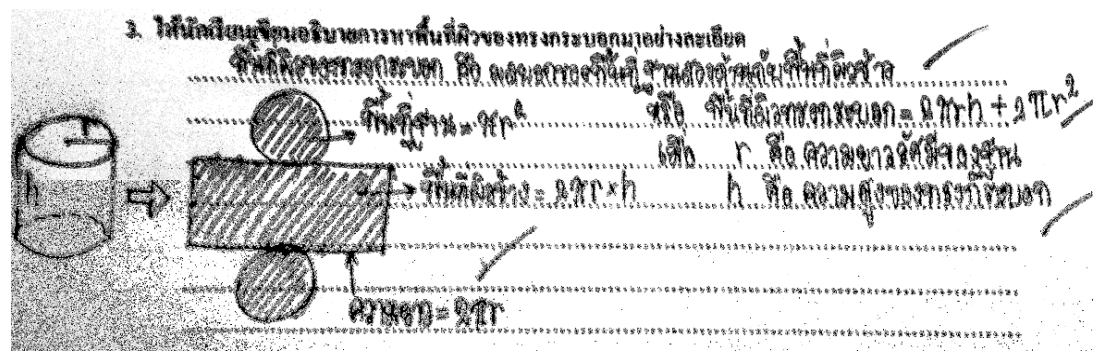 3. ให้นักเรียนเขียนอธิบายการหาพื้นที่ผิวของทรงกระบอกมาอย่างละเอียด
พื้นที่ผิวของทรงกระบอก คือ ผลบวกของพื้นที่ฐานสองด้านกับพื้นที่ผิวข้าง
r
พื้นที่ฐาน = πr²
หรือ พื้นที่ผิวทรงกระบอก = 2πrh + 2πr²
เมื่อ r คือ ความยาวรัศมีของฐาน
h
พื้นที่ผิวข้าง = 2πr×h
h คือ ความสูงของทรงกระบอก
ความยาว = 2πr